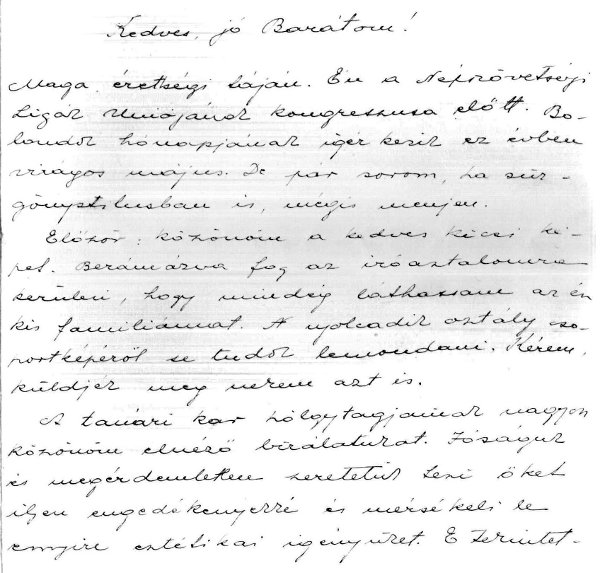 Kedves, jó Barátom!
Maga érettségi táján. Én a Népszövetségi
Ligák Uniójának kongresszusa előtt. Bo-
londok hónapjának igérkezik ez évben
virágos május. De pár sorom, ha sür-
gönystilusban is, mégis menjen.
Először: köszönöm a kedves kicsi ké-
pet. Berámázva fog az iróasztalomra
kerülni, hogy mindég láthassam az én
kis familiámat. A nyolcadik osztály cso-
portképéről se tudok lemondani. Kérem,
küldjék meg nekem azt is.
A tanári kar hölgytagjainak nagyon
köszönöm elnéző birálatukat. Jóságuk
és megérdemletlen szeretetük teszi őket
ilyen engedékenyekké és mérsékeli le
ennyire esztétikai igényüket. E tekintet-